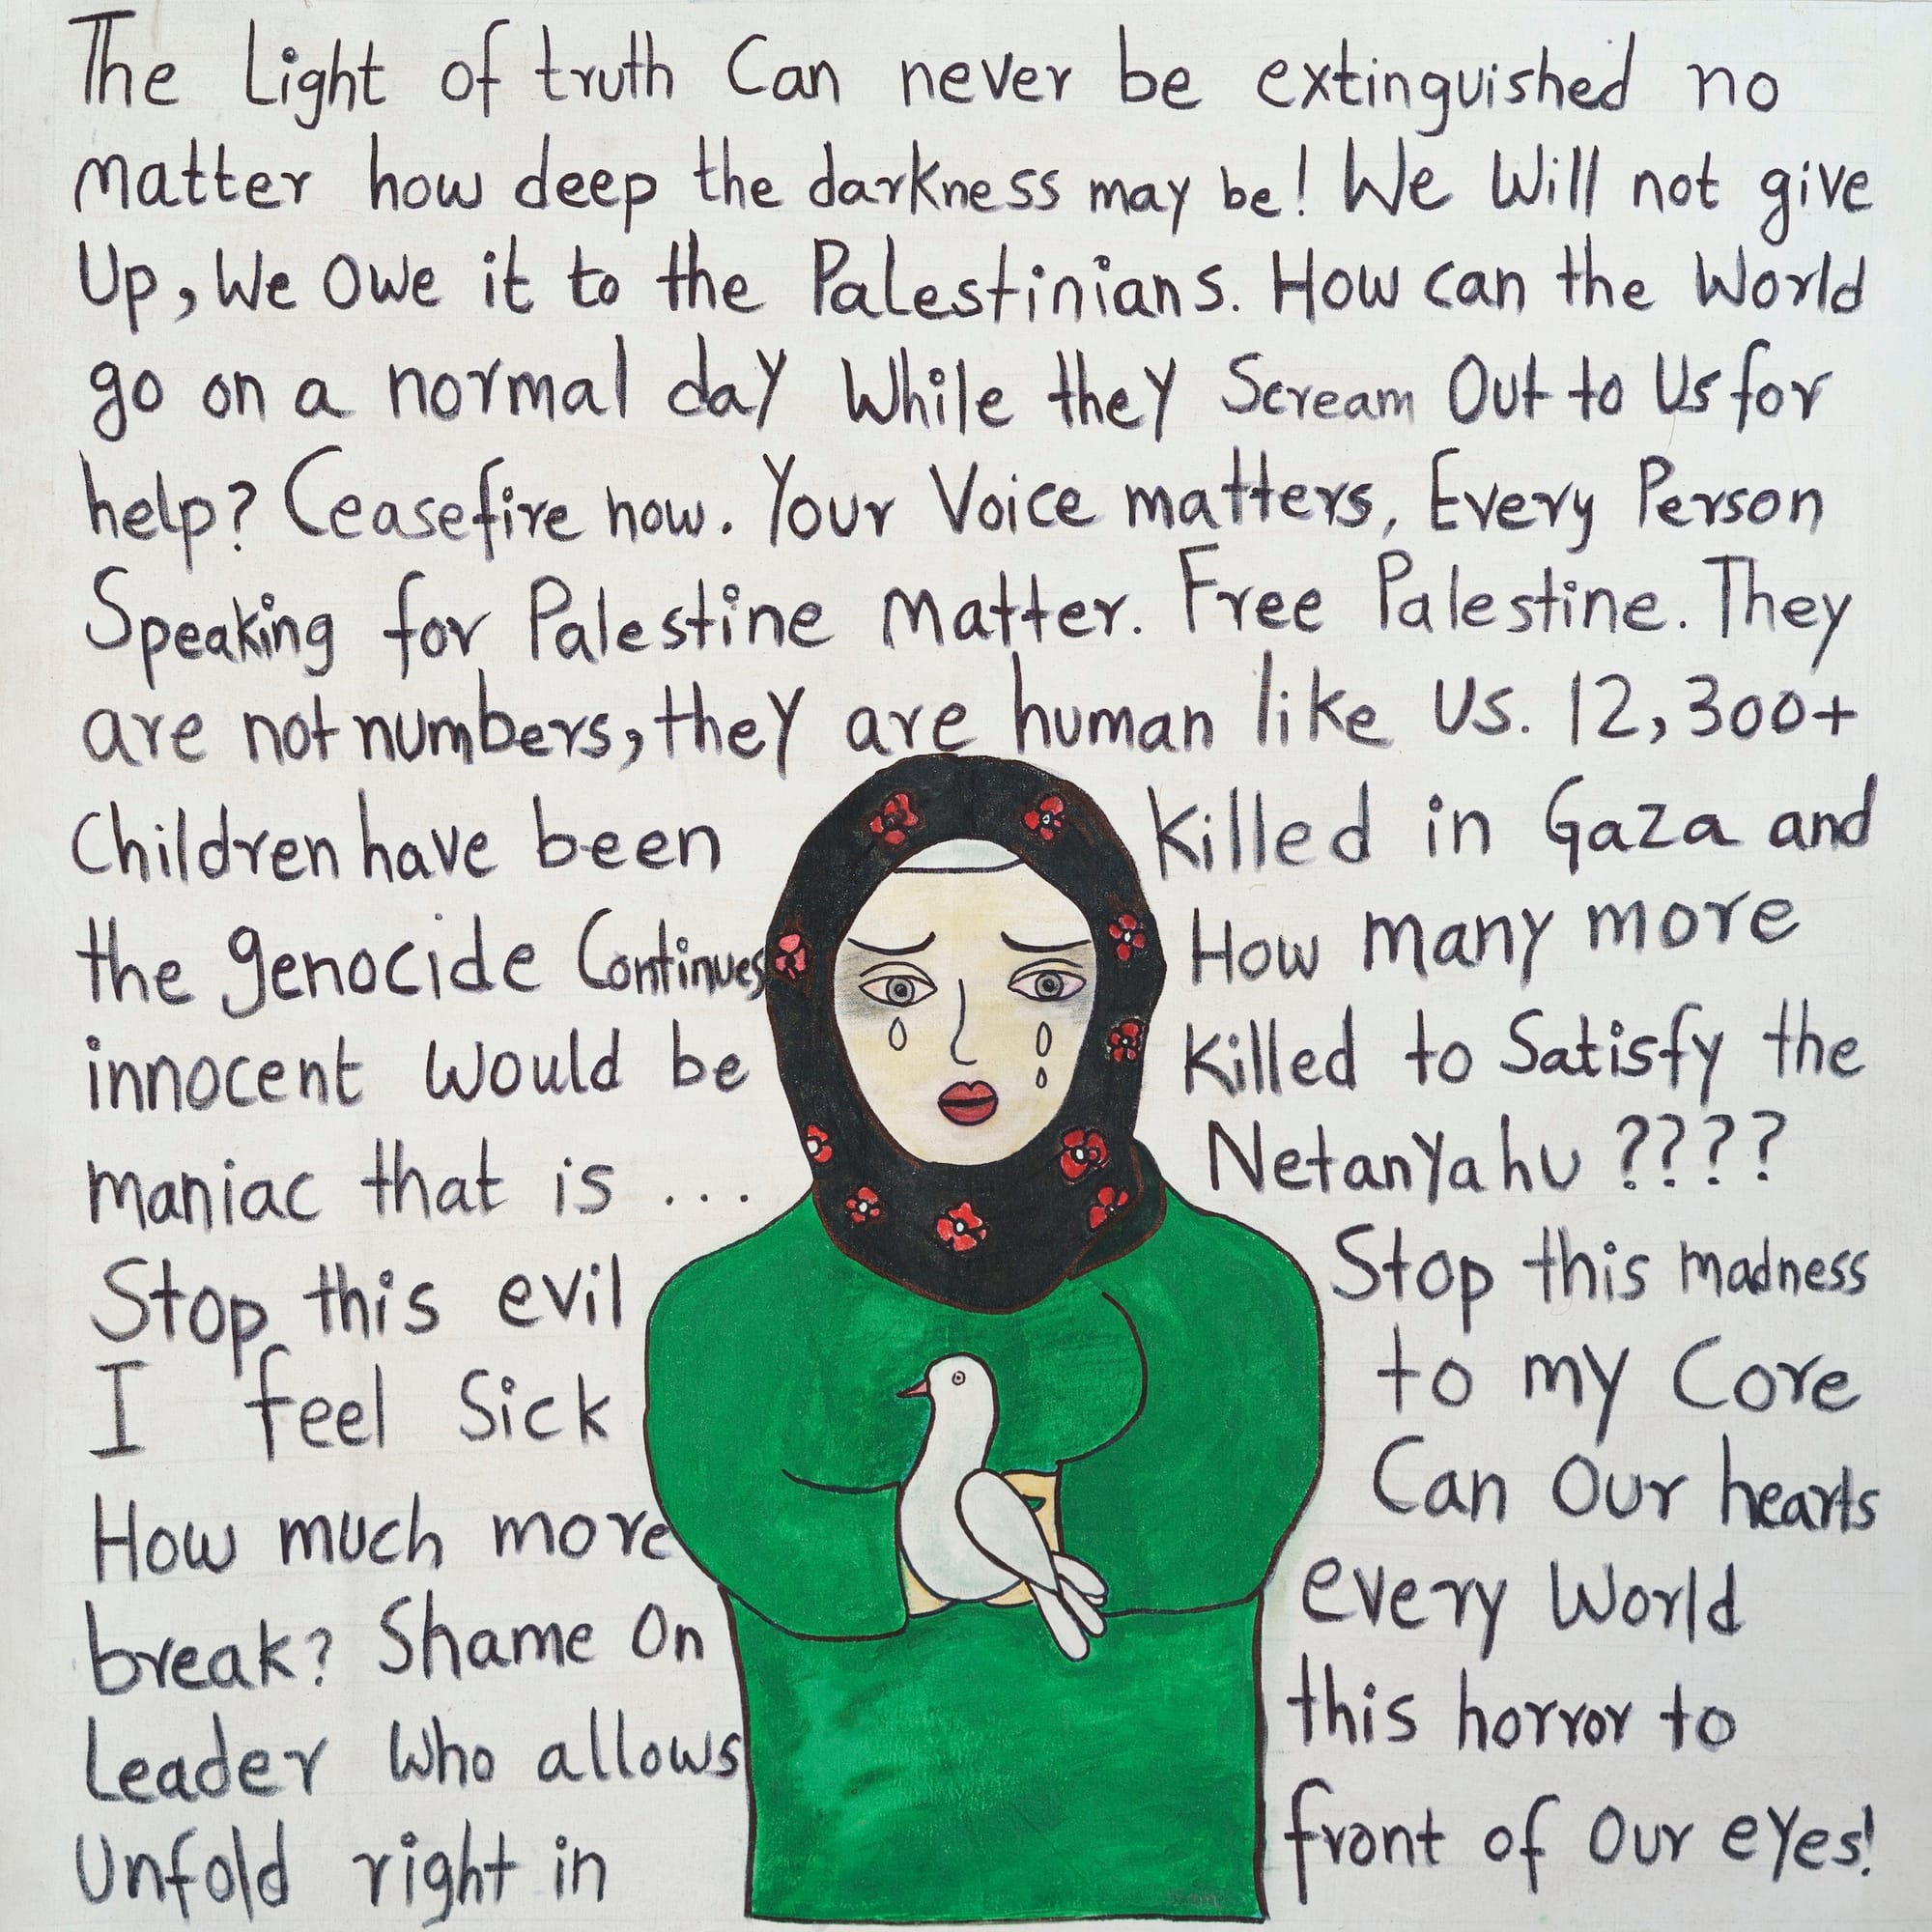 The Light of truth Can never be extinguished no
matter how deep the darkness may be! We Will not give
Up, We Owe it to the Palestinians. How can the World
go on a normal day While they Scream Out to Us for
help? Ceasefire now. Your Voice matters, Every Person
Speaking for Palestine Matter. Free Palestine. They
are not numbers, they are human like Us. 12,300+
Children have been Killed in Gaza and
the genocide Continues How many more
innocent Would be Killed to Satisfy the
maniac that is ... Netanyahu ????
Stop this evil Stop this madness
I feel Sick to my Core
How much more Can Our hearts
break? Shame On every World
Leader Who allows this horror to
Unfold right in front of Our eyes!